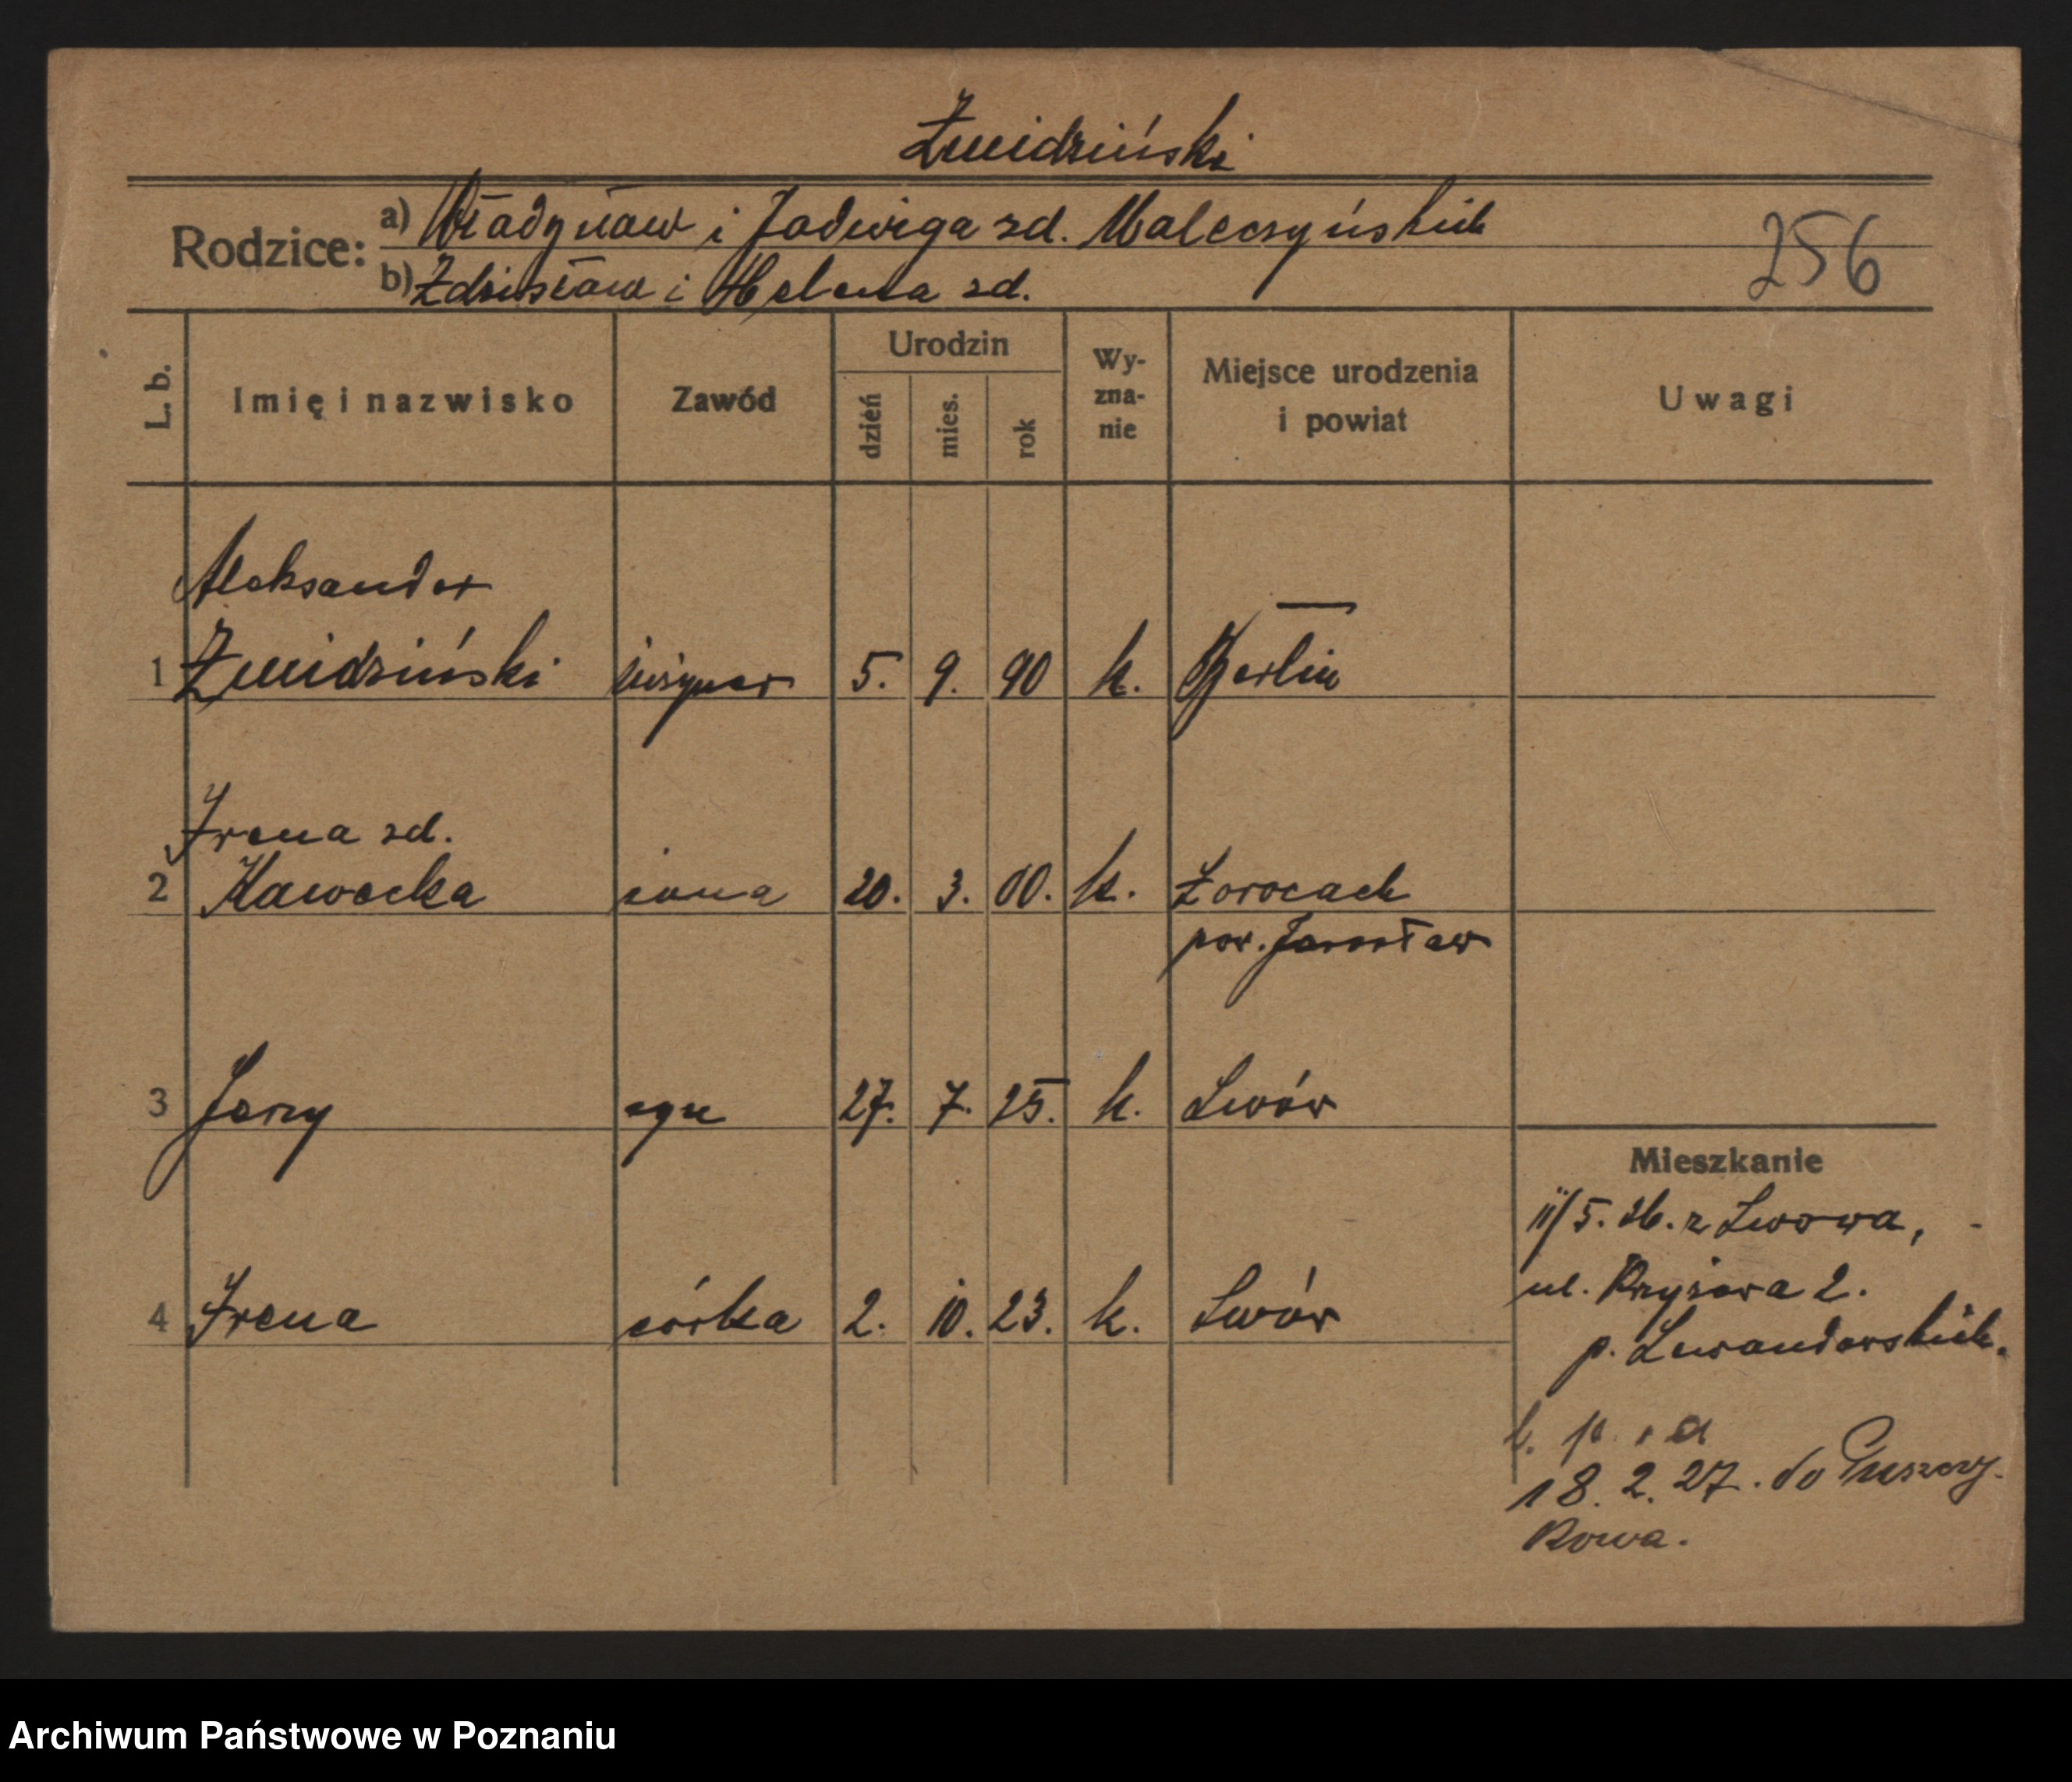 Żmidziński
Rodzice: a) Władysław i Jadwiga zd. Maleczyńskich
256
b) Zdzisław i Helena zd.
L. b.
Imię i nazwisko
Zawód
Urodzin
dzień
mies.
rok
Wy-
zna-
nie
Miejsce urodzenia
i powiat
Uwagi
Aleksander
1 Żmidziński inżynier 5. 9. 90 k. Berlin
Irena zd.
2 Kawecka żona 20. 3. 00. k.
pow. Jarosław
3 Jerzy syn 27. 7. 25. k. Lwów
Mieszkanie
11/5. 26. z Lwowa,
4 Irena córka 2. 10. 23. k. Lwów
ul. 2.
p. Lewandowskich.
18. 2. 27. do Puszczy-
kowa.
Archiwum Państwowe w Poznaniu